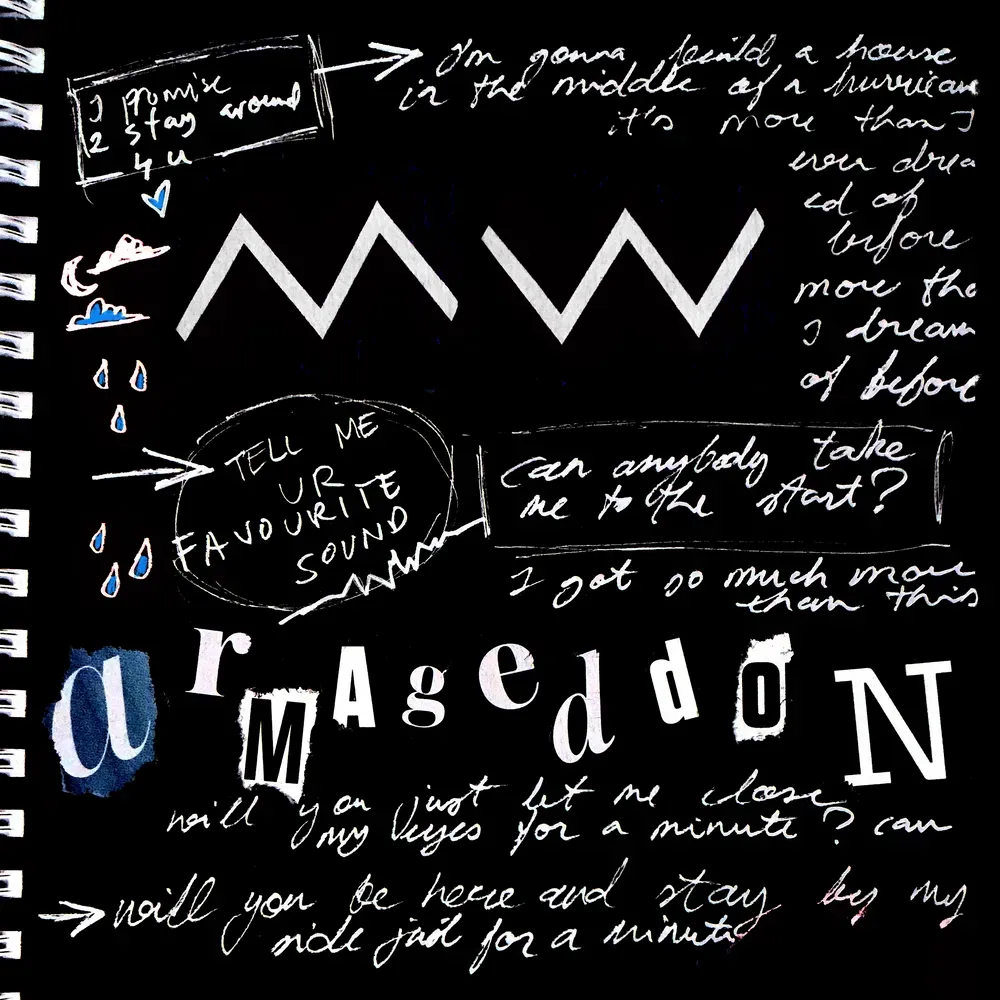 I promise
2 stay around
4 u
I'm gonna build a house
in the middle of a hurricane
it's more than I
ever drea
ed of
before
more tha
I dream
of before
MW
TELL ME
UR
FAVOURITE
SOUND
can anybody take
me to the start?
I got so much more
than this
arMAgeddoN
will you just let me close
my eyes for a minute? can
will you be here and stay by my
side just for a minute